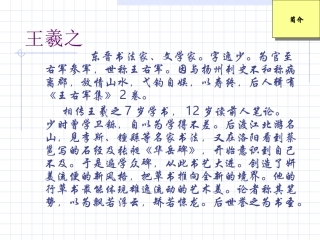 简介
王羲之
东晋书法家、文学家。字逸少。为官至
右军参军，世称王右军。因与扬州刺史不和称病
离郡，放情山水，弋钓自娱，以寿终，后人辑有
《王右军集》2卷。
相传王羲之7岁学书，12岁读前人笔论。
少时曾学卫自己，自以为学得不差。后渡江北游名
山，见李斯、钟繇等名家书法，又在洛阳看到蔡
邕写的石经及张昶《华岳碑》，开始意识到自己
不足。于是遍学众碑，从此书艺大进。创造了妍
美流便的新风格，把草书推向全新的境界。他的
行草书最能体现雄逸流动的艺术美。论者称其笔
势，以为飘若浮云，矫若惊龙。后世誉之为书圣。